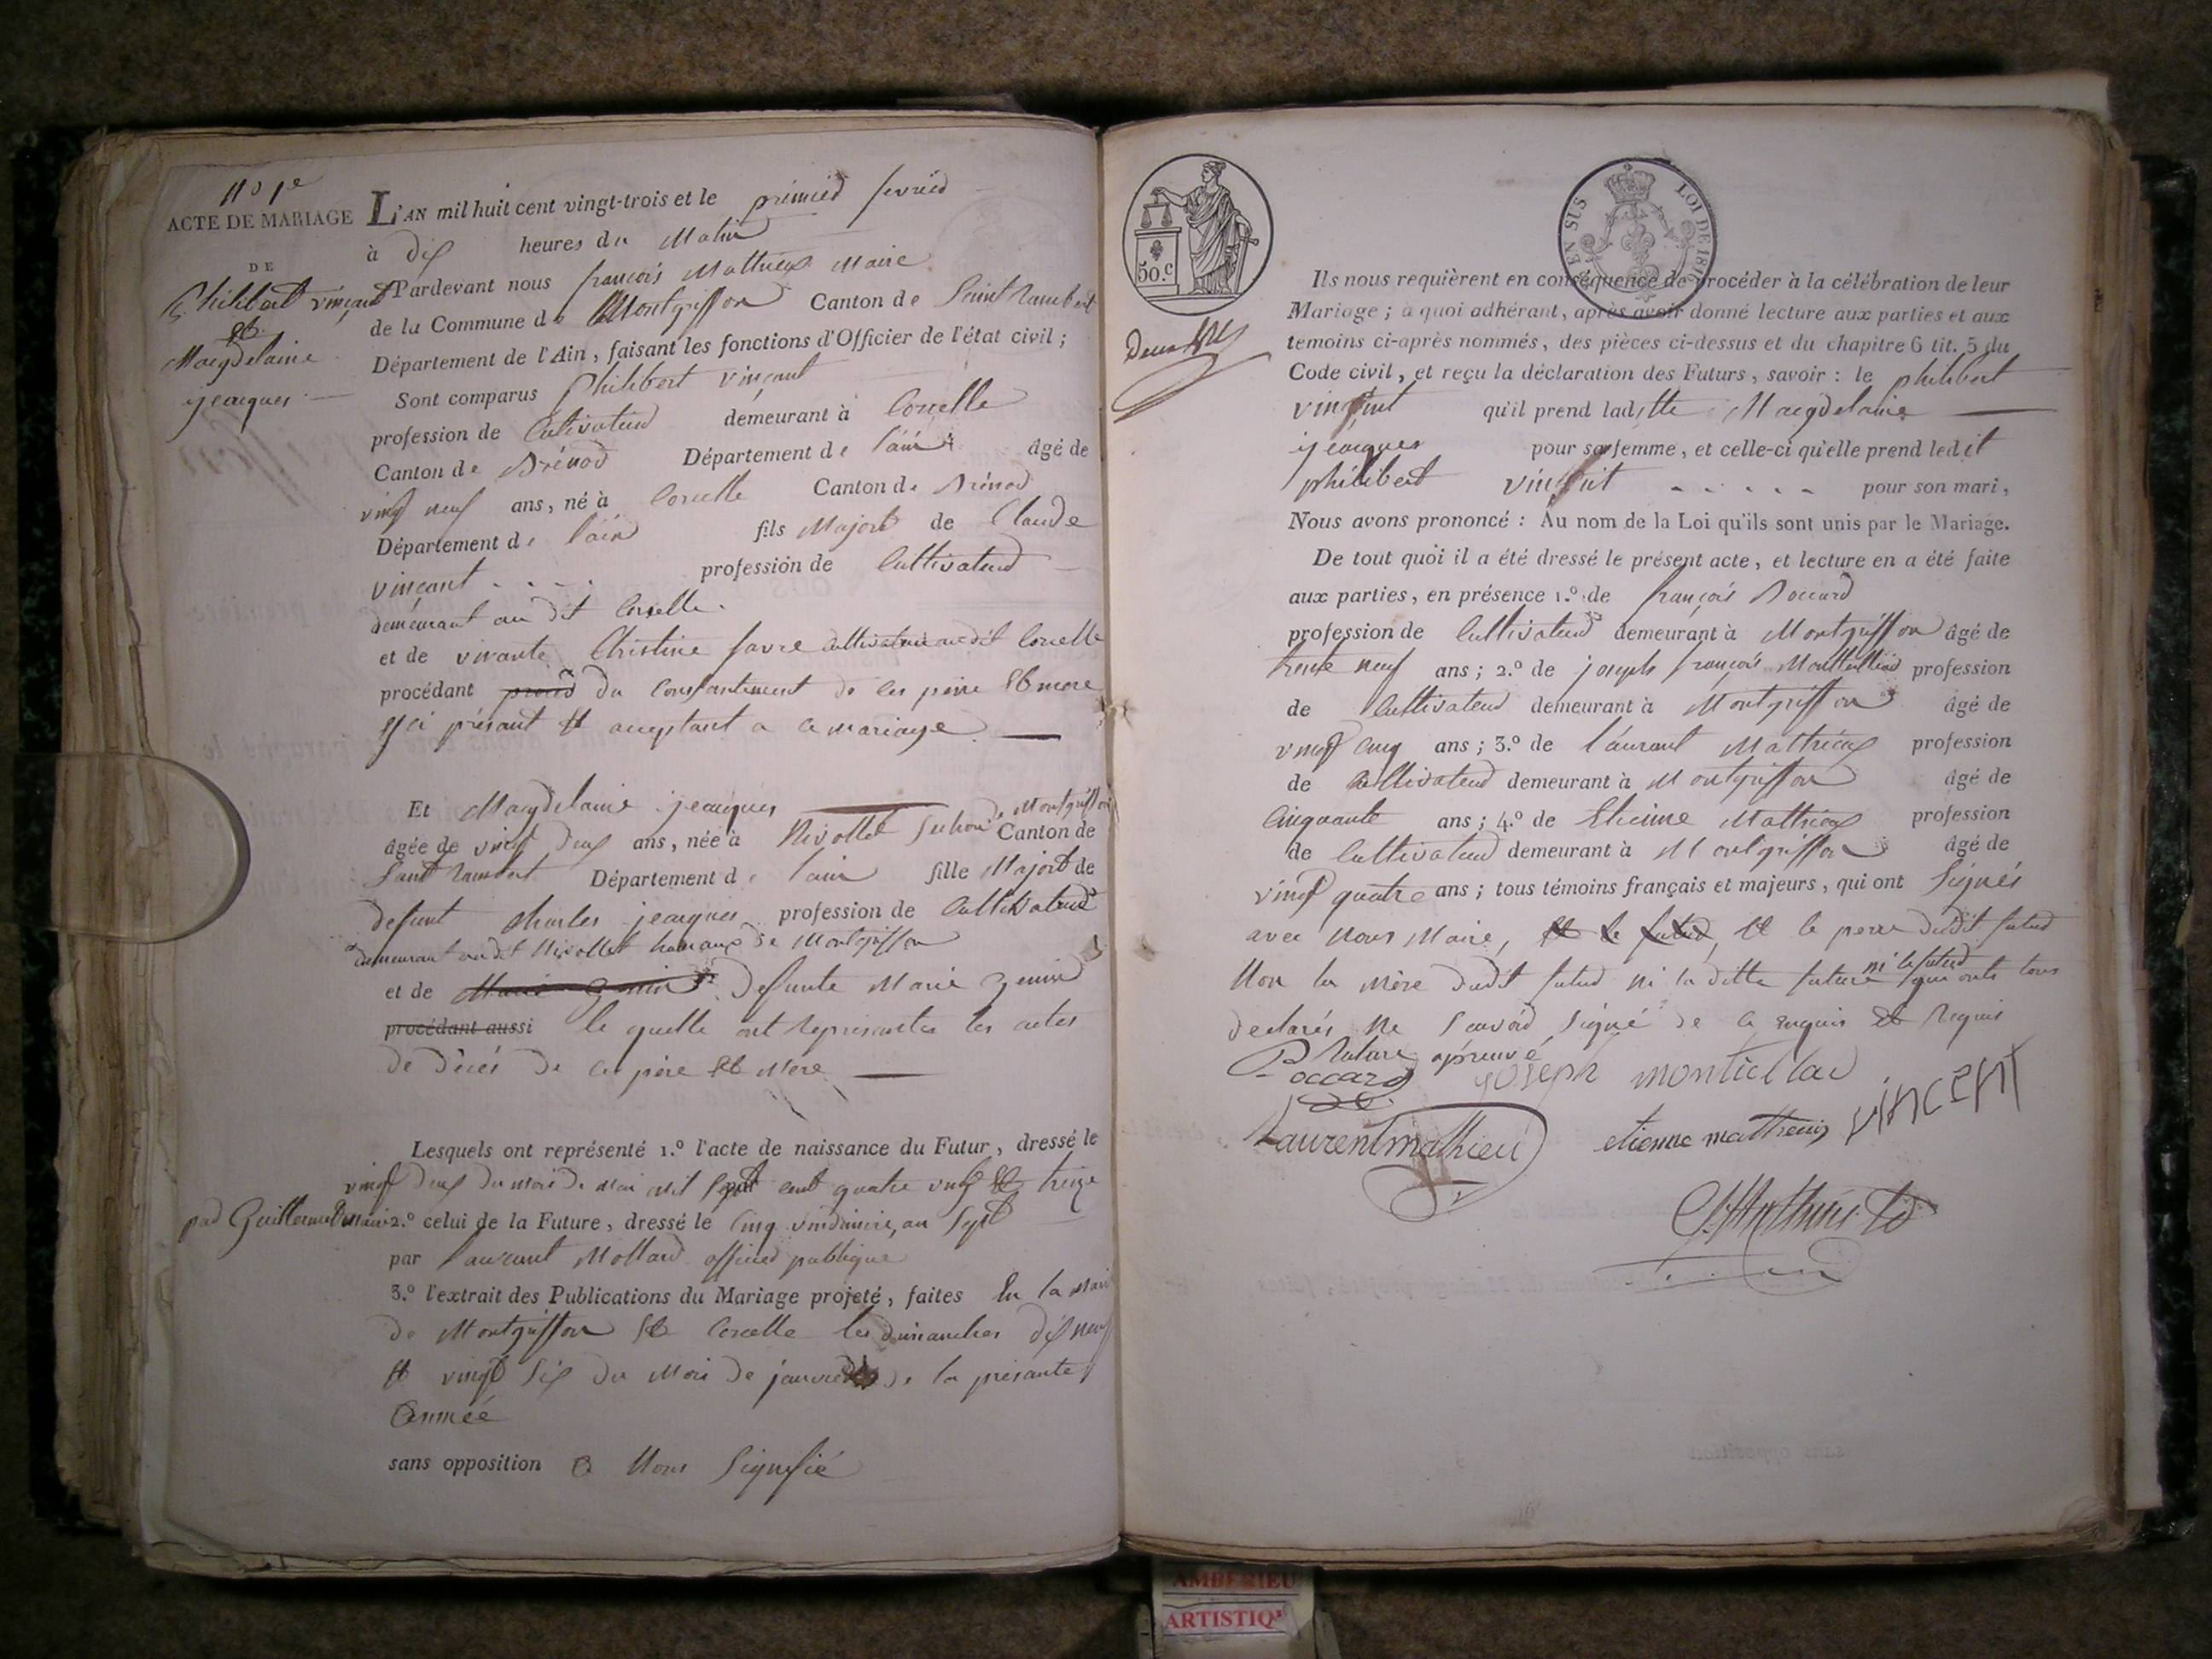 No 1e
ACTE DE MARIAGE
DE
Philibert vinçant
et
Magdelaine
jeacques
L'AN mil huit cent vingt-trois et le premier fevrier
à dix heures du Matin
Pardevant nous françois Mathieux Maire
de la Commune de Montgriffon Canton de Saint Rambert
Département de l'Ain, faisant les fonctions d'Officier de l'état civil ;
Sont comparus Philibert vinçant
profession de Cultivateur demeurant à Corcelle
Canton de Brénod Département de l'ain âgé de
vingt neuf ans, né à Corcelle Canton de Brénod
Département de l'ain fils Majort de Claude
vinçant . . . . profession de Cultivateur
demeurant au dit Corcelle.
et de vivante Christine favre Cultivatrice audit Corcelle
procédant du Consantement de ces père et mere
yci présant et acceptant a ce mariage
Et Magdelaine jeacques
âgée de vingt deux ans, née à Nivollet de Montgriffon Canton de
Saint Rambert Département de l'ain fille Majort de
defunt Charles jeacques profession de Cultivateur
demeurant audit Nivollet hameaux de Montgriffon
et de Marie Genin defunte Marie Genin
procédant aussi le quelle ont representer les actes
de décés de ces père et Mère
Lesquels ont représenté 1.º l'acte de naissance du Futur, dressé le
vingt deux du mois de Mai mil sept cent quatre vingt et treize
par Guillermet Maire 2.º celui de la Future, dressé le Cinq vindimiere, an sept
par Laurant Mollard officier publique
3.º l'extrait des Publications du Mariage projeté, faites En la Mairi
de Montgriffon et Corcelle les dimanches dix neuf
et vingt six du Mois de janvier de la présante
Année
sans opposition a Nous Signifié
50.c
EN SUS LOI DE 1816
Ils nous requièrent en conséquence de procéder à la célébration de leur
Mariage ; à quoi adhérant, après avoir donné lecture aux parties et aux
temoins ci-après nommés, des pièces ci-dessus et du chapitre 6 tit. 5 du
Code civil, et reçu la déclaration des Futurs, savoir : le philibert
vinçant qu'il prend laditte Magdelaine
jeacques pour sa femme, et celle-ci qu'elle prend ledit
philibert vinçant - - - - - pour son mari,
Nous avons prononcé : Au nom de la Loi qu'ils sont unis par le Mariage.
De tout quoi il a été dressé le présent acte, et lecture en a été faite
aux parties, en présence 1.º de françois Boccard
profession de Cultivateur demeurant à Montgriffon âgé de
trente neuf ans ; 2.º de joseph françois Monteillard profession
de Cultivateur demeurant à Montgriffon âgé de
vingt cinq ans ; 3.º de laurant Mathieux profession
de Cultivateur demeurant à Montgriffon âgé de
Cinquante ans ; 4.º de Etienne Mathieux profession
de Cultivateur demeurant à Montgriffon âgé de
vingt quatre ans ; tous témoins français et majeurs, qui ont Signés
avec Nous Maire, et le futur, et le pere dudit futur
Non la mère dudit futur ni la ditte future ni le futur qui onts tous
declarés ne Savoir signé de ce enquis et Requis
Rature apreuvé
Boccard
joseph montiellad
Laurent mathieu
etienne mathieux
vincent
AMBERIEU
ARTISTIQ